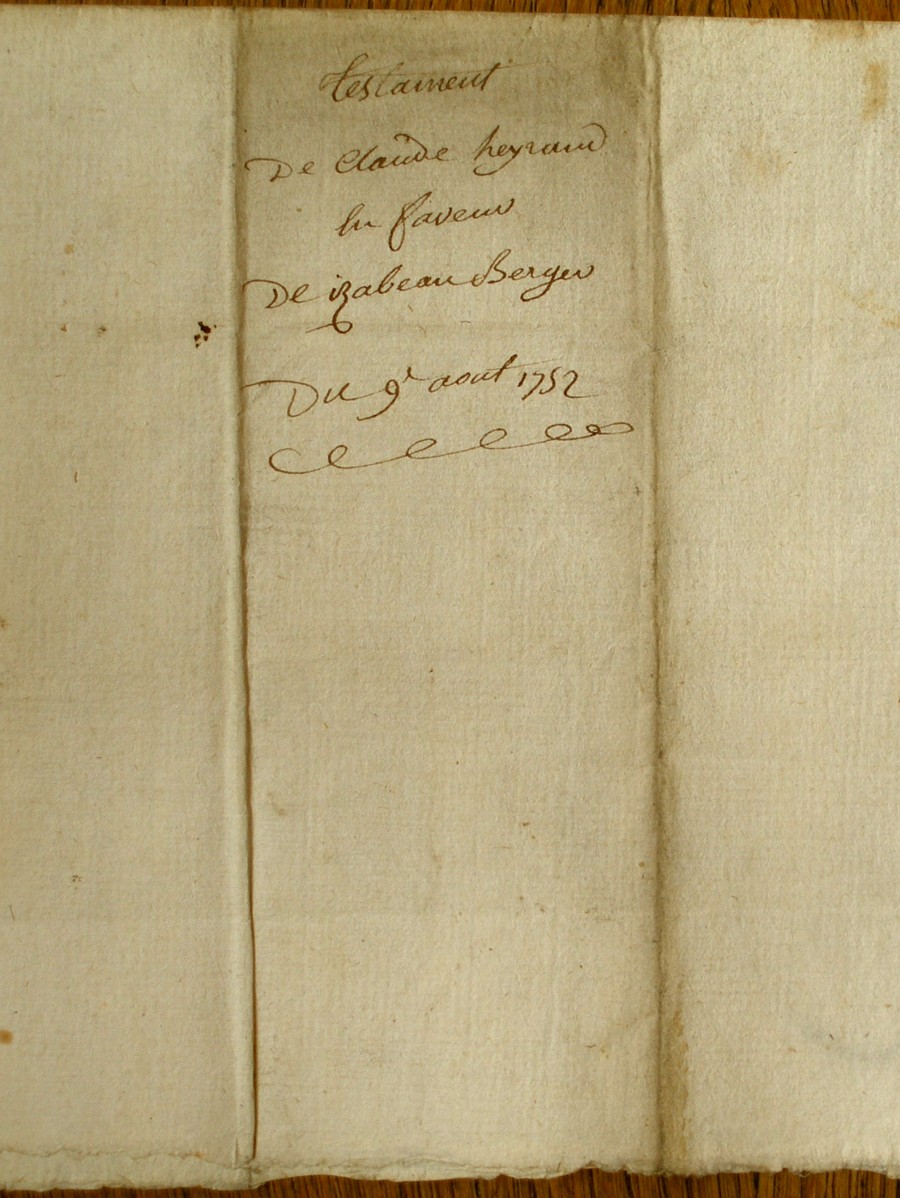 testament
De Claude heyraud
En faveur
De izabeau Berger
Du 9e aout 1752